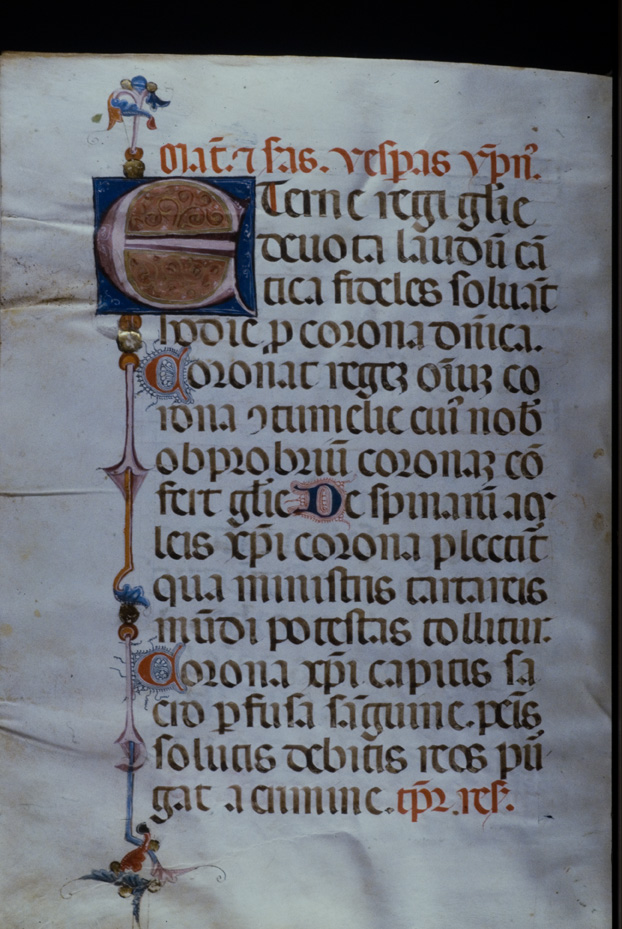 Mat̄. ⁊ scās. vespas ypn̄.
Eterne regi gl̄ie
deuota laudū cā
tica fideles soluāt
hodie p̱ corona dn̄ica.
Coronat regeʒ oīuʒ co
rona ↄtumelie cuiꝰ nob̄
obprobriū coronaʒ cō
fert gl̄ie De spinarū ag
leis xp̄i corona plectit̄
qua ministris tartareis
mūdi potestas tollitur.
Corona xp̄i capitis sa
cro p̱fusa sāguine. pēis
solutis debitis reos pū
gat a crimine. tp̄r. res.